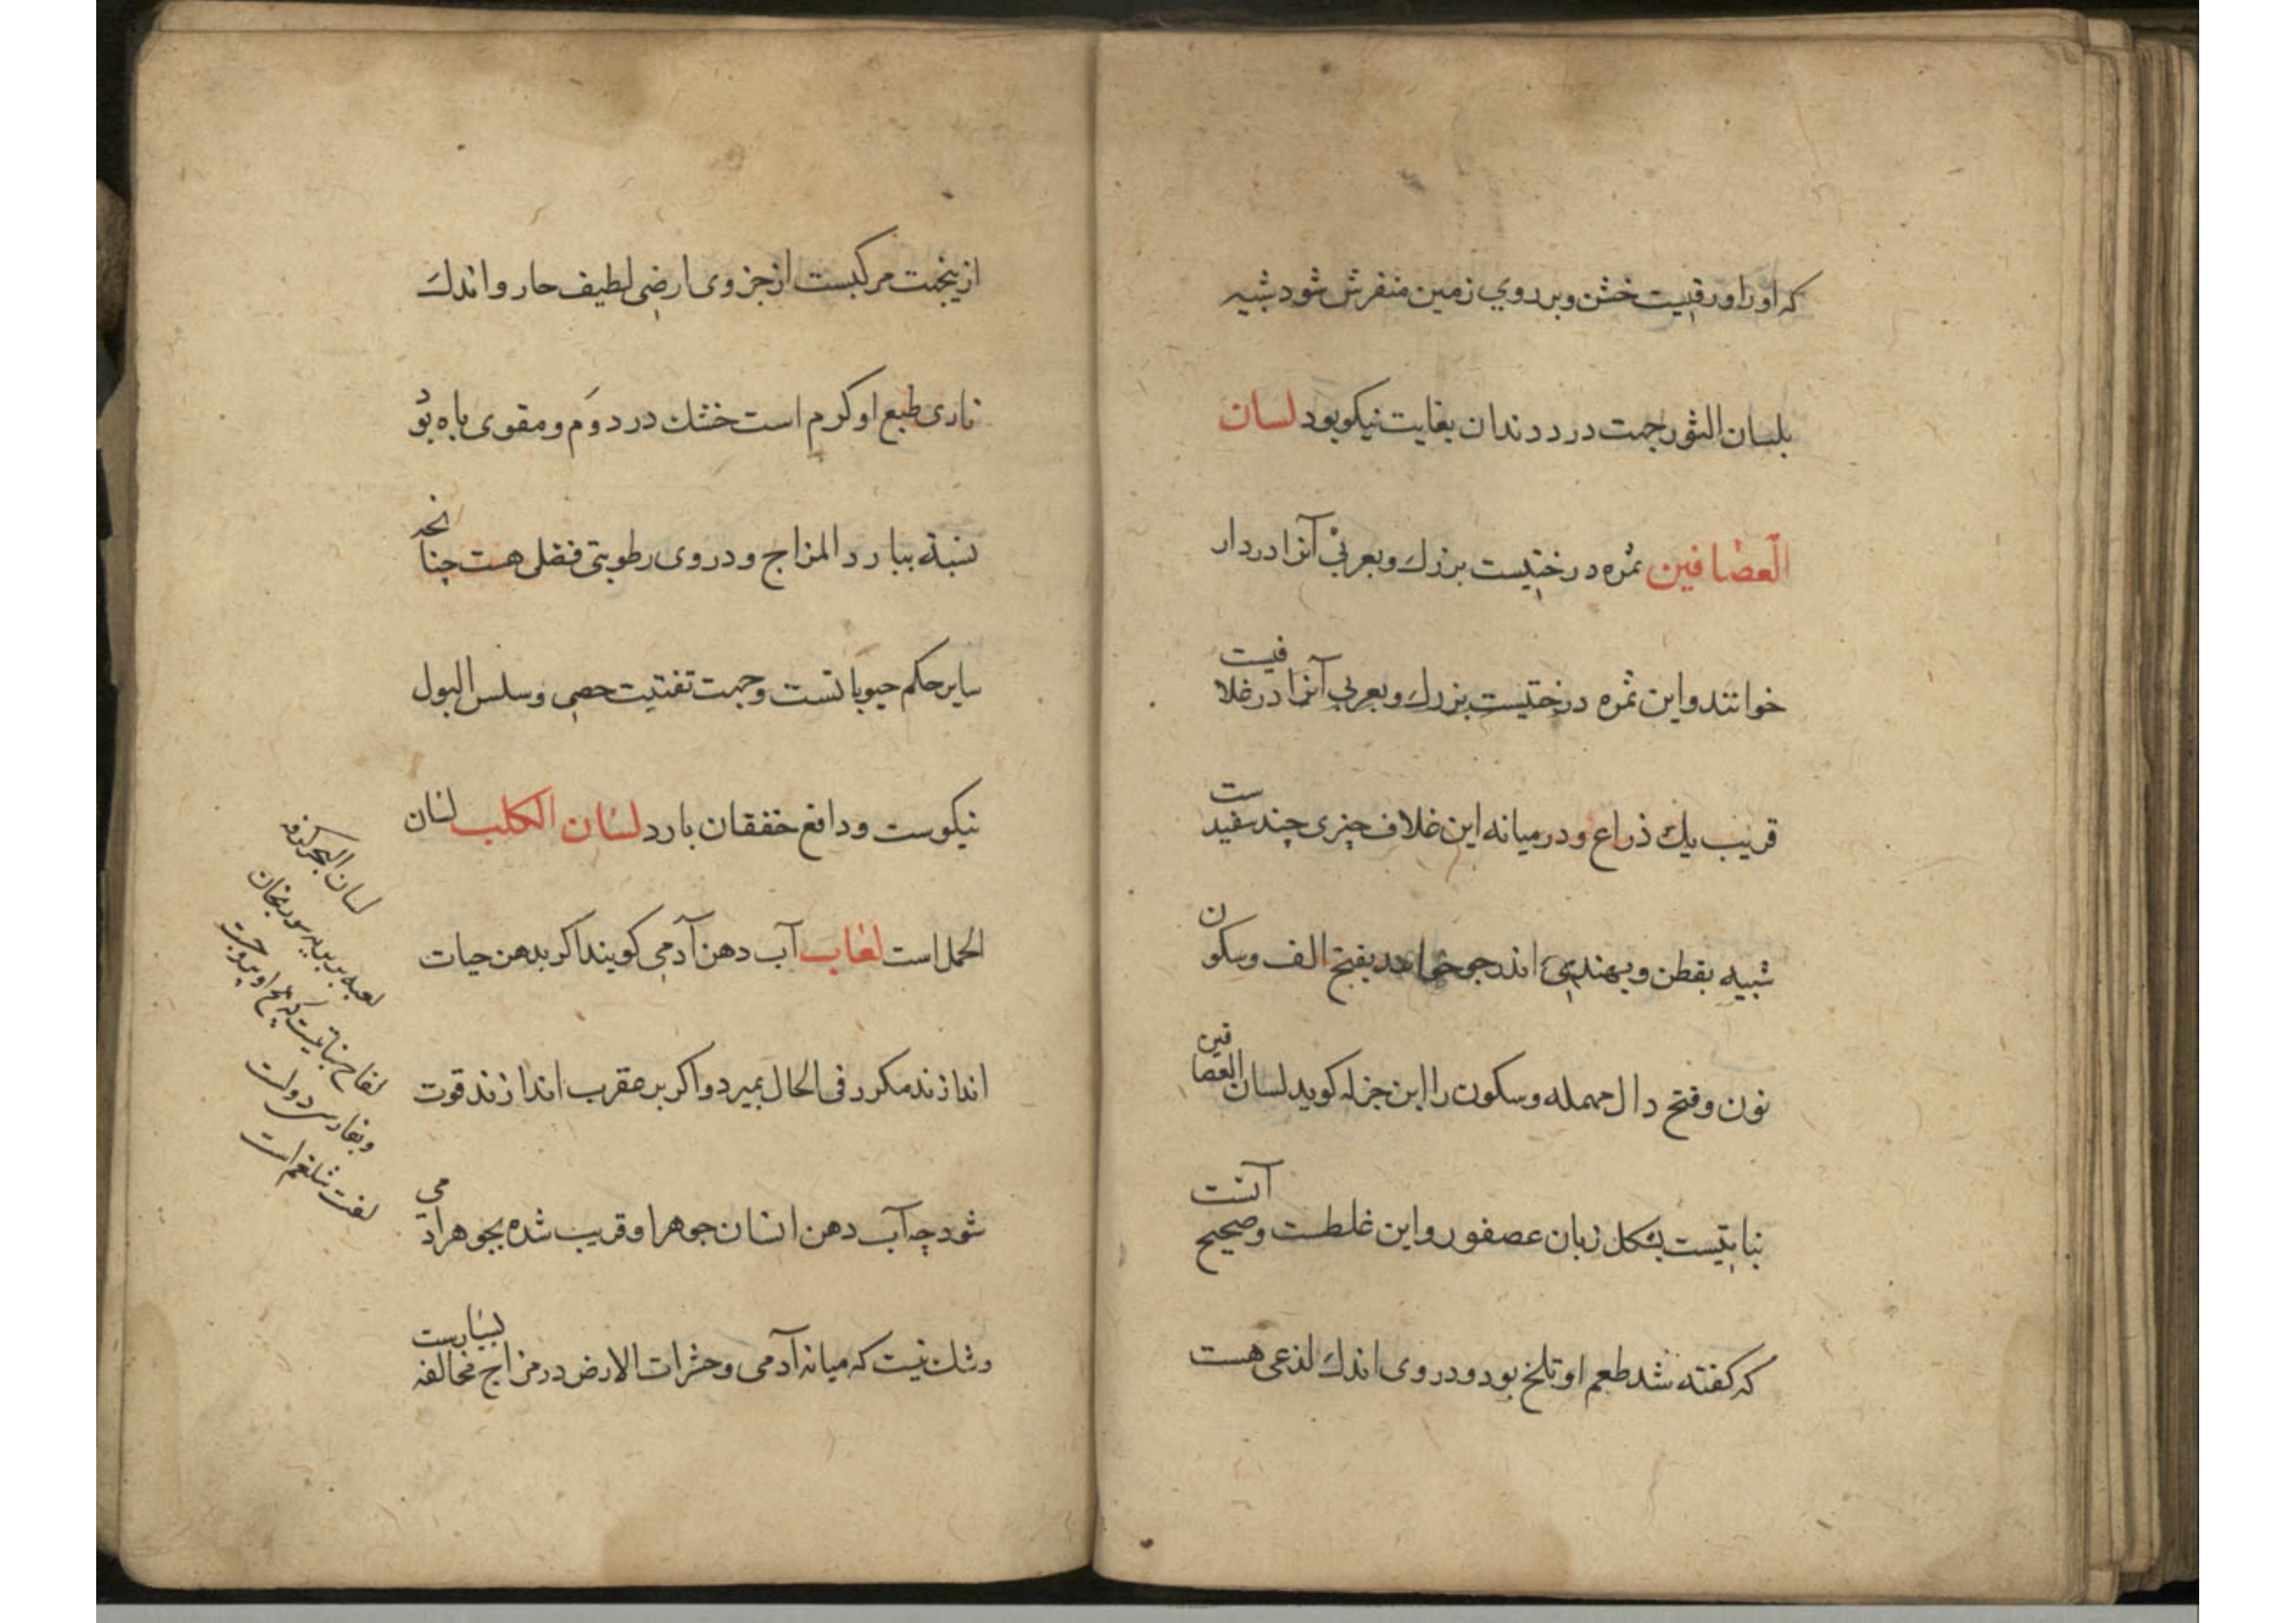 که اورا ورقیست خشن و بر روی زمین منفرش شود شبیه
بلسان الثور جهت درد دندان بغایت نیکو بود لسان
العصافین ثمره درختیست بزرك و بعربی آنرا دردار
خوانند و این ثمره درختیست بزرك و بعربی آنرا در غلافیست
قریب یك ذراع و در میانه این غلاف چیزی چند سفیدست
شبیه بقطن و بهندی اندرجو خوانند بفتح الف و سکون
نون و فتح دال مهمله و سکون را ابن جزله کوید لسان العصافین
نباتیست بشکل زبان عصفور و این غلطست و صحیح آنست
که کفته شد طعم او تلخ بود و در وی اندك لذعی هست
ازینجهت مرکبست از جزوی ارضی لطیف حار و اندك
ناری طبع او کرم است خشك در دوم و مقوی باه بو
نسبة ببارد المزاج و در وی رطوبتی فضلی هست چنانچه
سایر حکم حبوباتست و جهت تفتیت حصی و سلس البول
نیکوست و دافع خفقان بارد لسان الکلب لسان
الحمل است لعاب آب دهن آدمی کویند اکر بدهن حیات
اندازند مکرر فی الحال بمیرد و اکر بر عقرب اندازند قوت
شود چه آب دهن انسان جوهر او قریب شده بجوهر آدمی
و شك نیست که میانه آدمی و حشرات الارض در مزاج مخالفه بسیارست
لسان البحر
لعبه بربریه سورنجان
لفاح نباتیست که بیخ او یبروجست
و بفارسی
لفت شلغم است